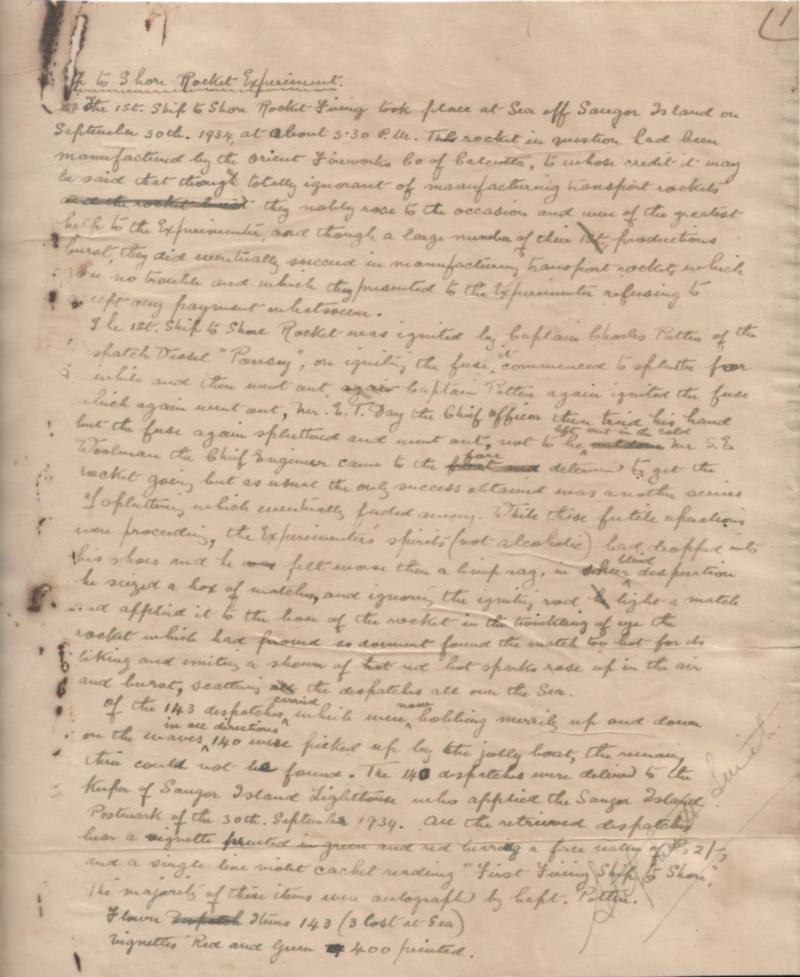 1
to Shore Rocket Experiment.
The 1st. Ship to Shore Rocket Firing took place at Sea off Saugor Island on
September 30th. 1934, at about 3·30 P.M. The rocket in question had been
manufactured by the Orient Fireworks Co of Calcutta, to whose credit it may
be said that though totally ignorant of manufacturing transport rockets
and the rocket they nobly rose to the occasion and were of the greatest
help to the Experimenter, and though a large number of their 1st. productions
burst, they did eventually succeed in manufacturing transport rockets, which
gave no trouble and which they presented to the Experimenter refusing to
accept any payment whatsoever.
The 1st. Ship to Shore Rocket was ignited by Captain Charles Potter of the
spatch Vessel "Pansy", on igniting the fuse, it commenced to splutter for
while and then went out, again Captain Potter again ignited the fuse
which again went out, Mr. E. T. Day the Chief officer then tried his hand
but the fuse again spluttered and went out, not to be left out in the cold Mr S. E.
Woolman the Chief Engineer came to the fore determined to get the
rocket going but as usual the only success obtained was another series
of spluttering which eventually faded away. While these futile operations
were proceeding, the Experimenter's spirits (not alcoholic) had dropped into
his shoes and he was felt worse than a limp rag, in sheer blind desperation
he seized a box of matches, and ignoring the igniting rod light a match
and applied it to the base of the rocket in the twinkling of eye the
rocket which had proved so dormant found the match too hot for its
liking and emiting a shower of hot red hot sparks rose up in the air
and burst, scattering all the despatches all over the Sea.
Of the 143 despatches carried, which were now bobbing merrily up and down
on the waves in all directions, 140 were picked up by the jolly boat, the remaing
three could not be found. The 140 despatches were delivered to the
Keeper of Saugor Island Lighthouse who applied the Saugor Island
Postmark of the 30th. September 1934. All the retrieved despatches
bear a vignette printed in green and red bearing a face value of Rs 2/-,
and a single line violet cachet reading "First Firing Ship to Shore".
The majority of these items were autograph by Capt. Potter.
Flown Despatch Items 143 (3 lost at Sea)
Vignettes Red and Green 400 printed.
Stephen Smith